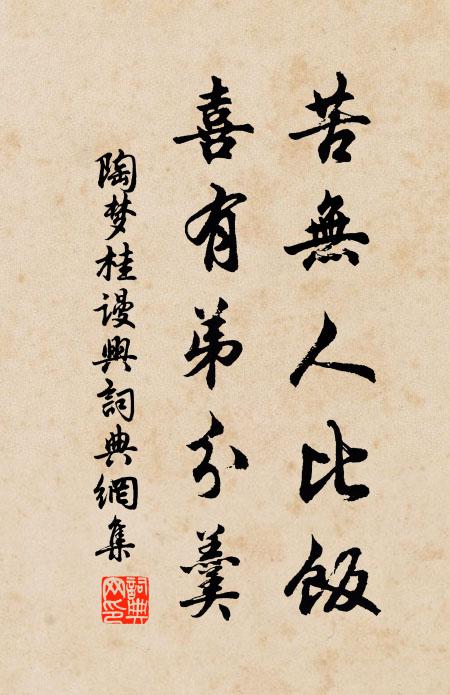 苦無人比飯
喜有弟分羹
陶梦桂谩興詞典網集
詞典